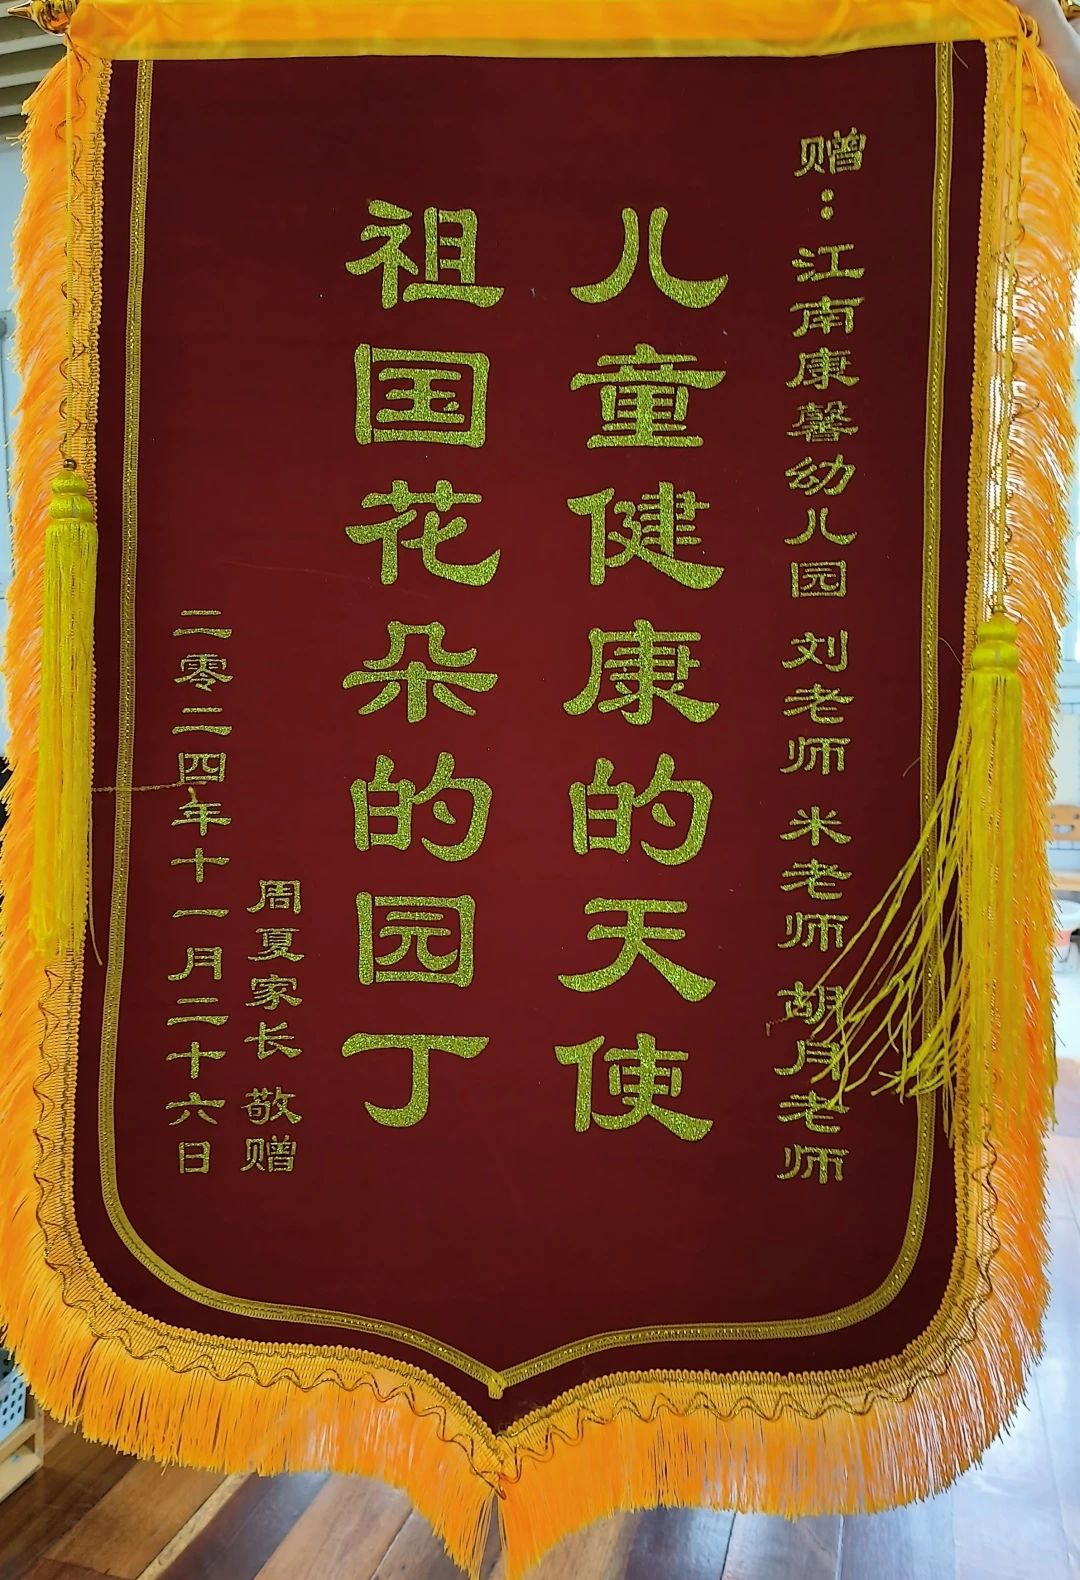 赠：江南康馨幼儿园 刘老师 米老师 胡月老师
儿童健康的天使
祖国花朵的园丁
周夏家长 敬赠
二零二四年十一月二十六日